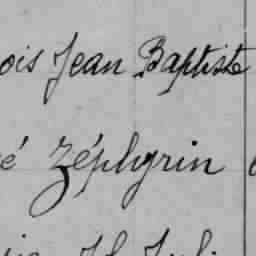 ois Jean Baptiste
é Zéphyrin